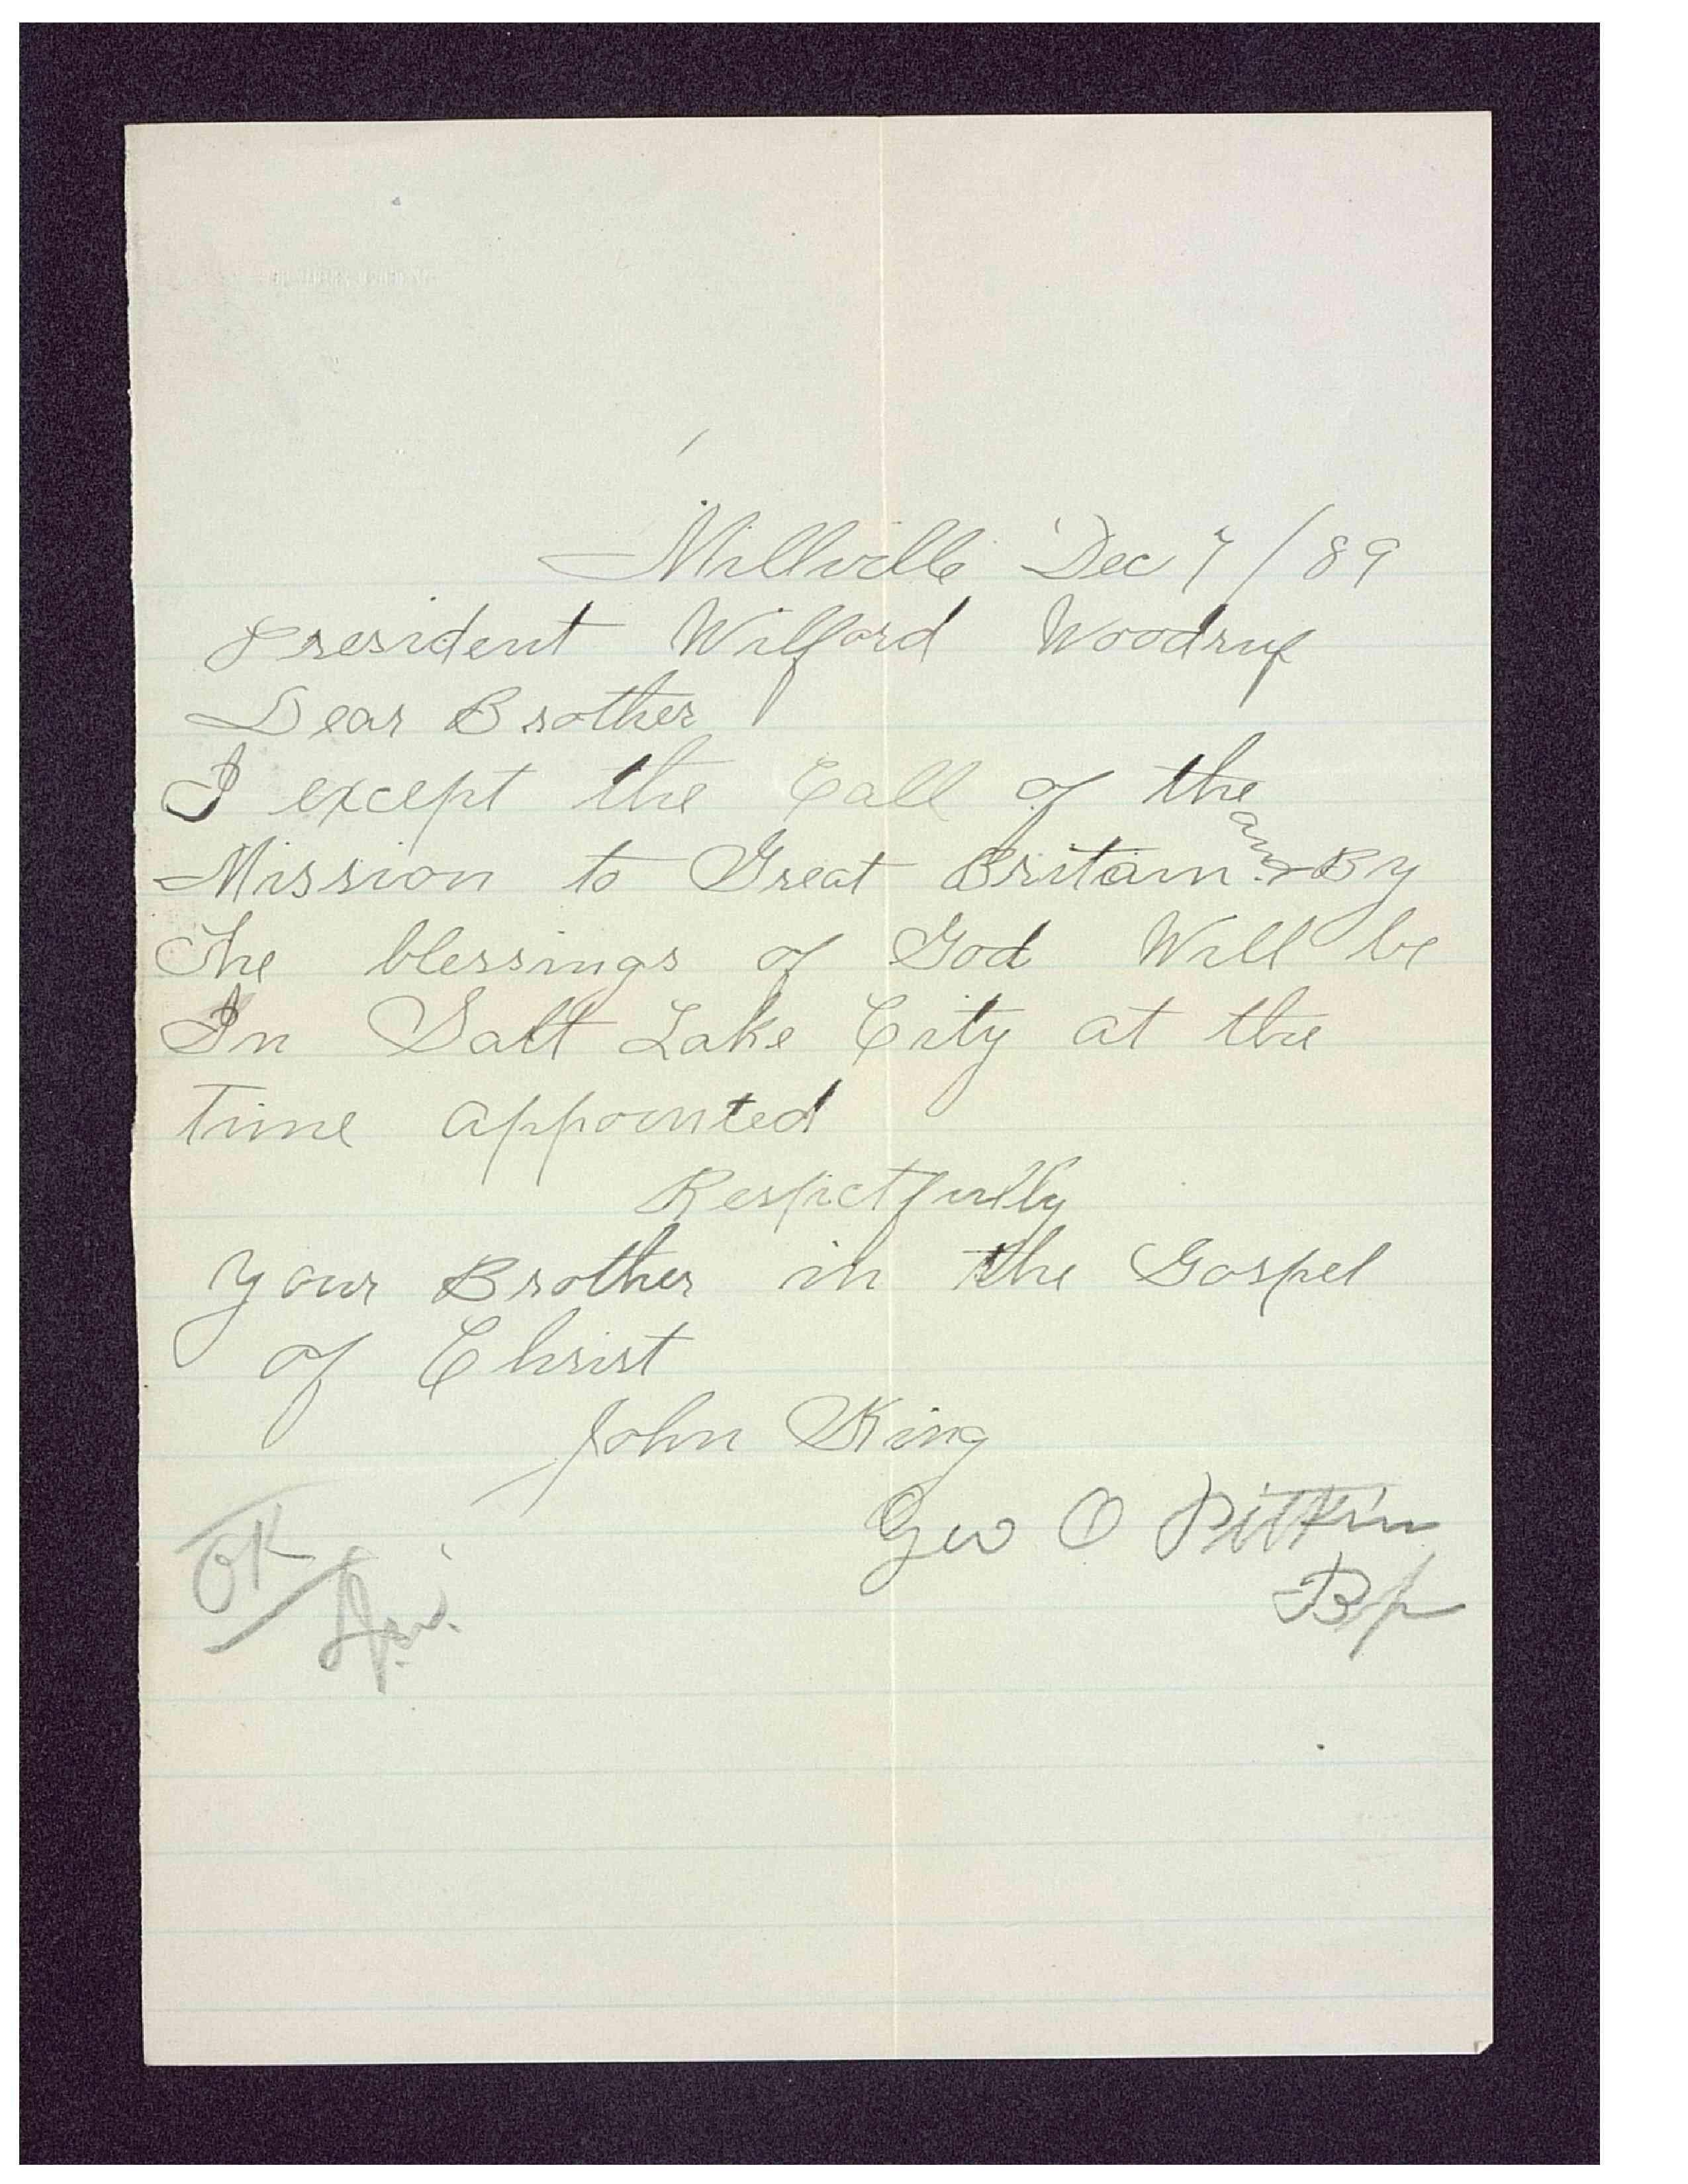 Millville Dec 7/89
President Wilford Woodruf
Dear Brother
I except the Call of the
Mission to Great Britain and By
The blessings of God Will be
In Salt Lake City at the
Time appointed
Respictfully
your Brother in the Gospel
of Christ
John King
Geo O Pitkin
Bp
OK